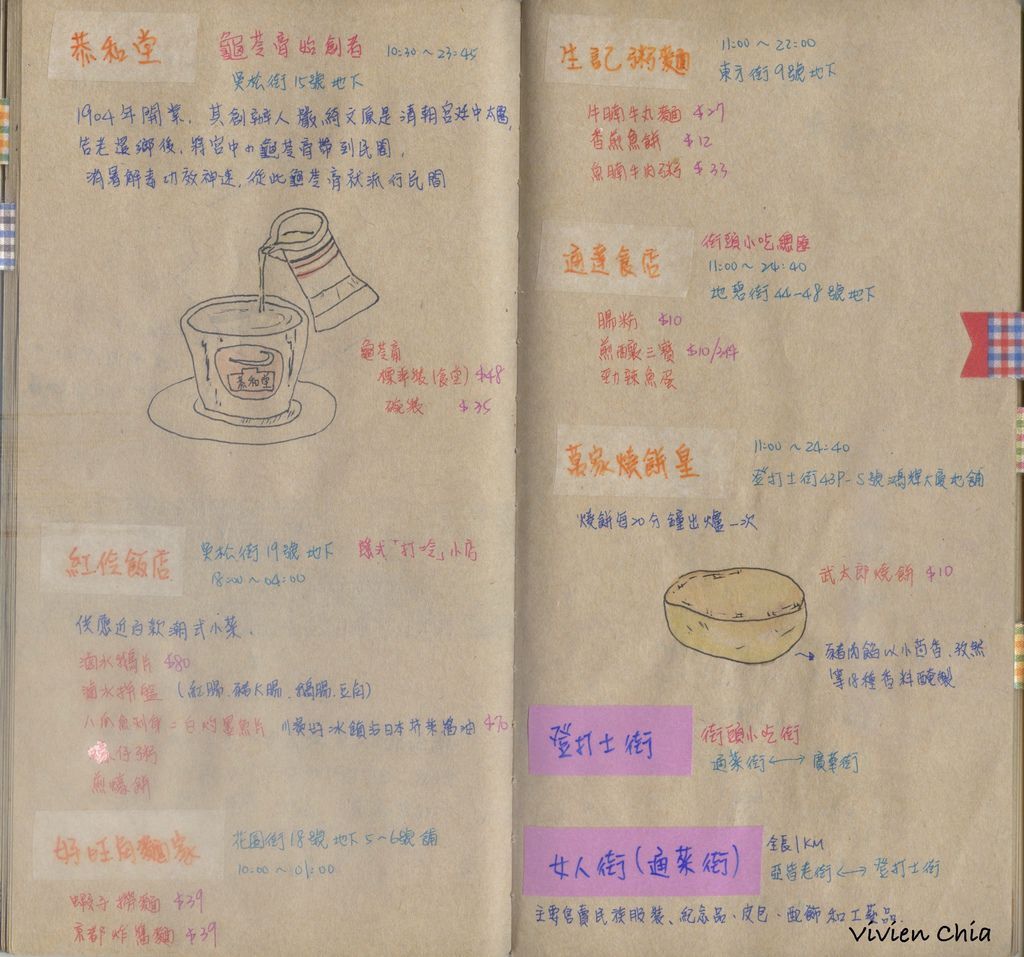 恭和堂
龜苓膏始創者
10:30～23:45
吳松街15號地下
1904年開業，其創辦人嚴綺文原是清朝宮廷中太醫，
告老還鄉後，將宮中の龜苓膏帶到民間，
消暑解毒功效神速，從此龜苓膏就流行民間
恭和堂
龜苓膏
標準裝(食堂) $48
碗裝 $35
飯店
吳松街19號地下
「打冷」小店
18:00～04:00
供應近百款潮式小菜，
滷水鵝片 $80
滷水拼盤 (紅腸、豬大腸、鵝腸、豆角)
八爪魚刺身 = 白灼墨魚片
冰鎮与日本芥茉醬油 $70
蠔仔粥
煎蠔餅
好旺角麵家
花園街18號地下5～6號舖
10:00～01:00
蝦子撈麵 $39
京都炸醬麵 $39
生記粥麵
11:00～22:00
東方街9號地下
牛腩牛丸麵 $27
香煎魚餅 $12
魚腩牛肉粥 $33
通達食店
街頭小吃總匯
11:00～24:40
地碧街44-48號地下
腸粉 $10
煎釀三寶 $10/3件
勁辣魚蛋
萬家燒餅皇
11:00～24:40
登打士街43P-S號鴻輝大廈地舖
燒餅每20分鐘出爐一次
武大郎燒餅 $10
豬肉餡以小茴香、孜然
等多種香料醃製
登打士街
街頭小吃街
通菜街⟷廣華街
女人街(通菜街)
全長1KM
亞皆老街⟷登打士街
主要售賣民族服裝、紀念品、皮包、配飾和工藝品。
Vivien Chia